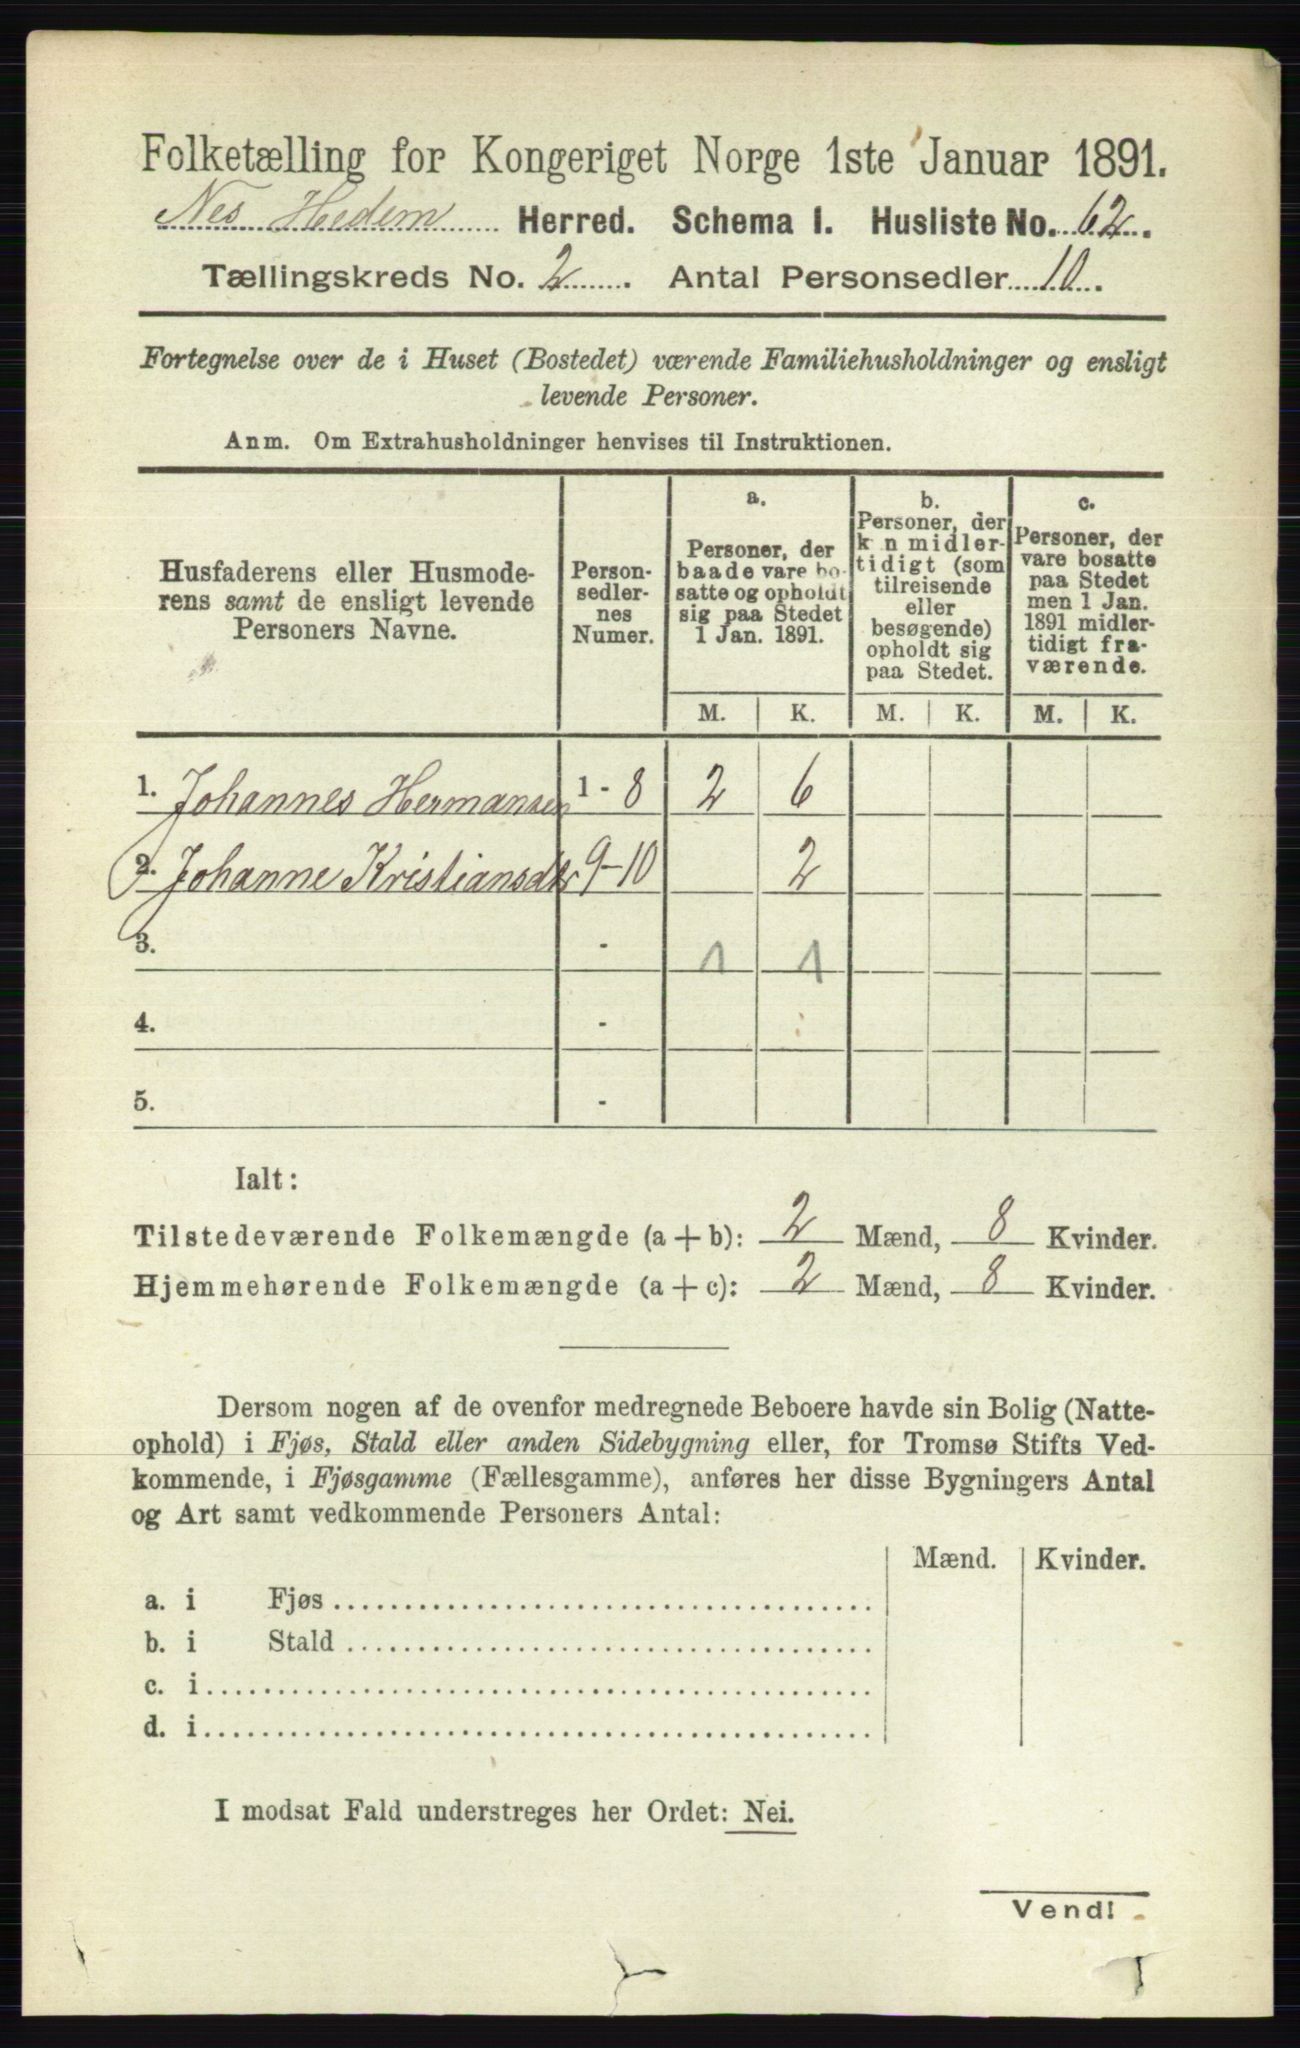 Folketælling for Kongeriget Norge 1ste Januar 1891.
Nes Hedem Herred. Schema I. Husliste No. 62.
Tællingskreds No. 2. Antal Personsedler 10.
Fortegnelse over de i Huset (Bostedet) værende Familiehusholdninger og ensligt
levende Personer.
Anm. Om Extrahusholdninger henvises til Instruktionen.
Husfaderens eller Husmode-
rens samt de ensligt levende
Personers Navne.
Person-
sedler-
nes
Numer.
a.
Personer, der
baade vare bo-
satte og opholdt
sig paa Stedet
1 Jan. 1891.
b.
Personer, der
k n midler-
tidigt (som
tilreisende
eller
besøgende)
opholdt sig
paa Stedet.
c.
Personer, der
vare bosatte
paa Stedet
men 1 Jan.
1891 midler-
tidigt fra-
værende.
M. K. M. K. M. K.
1. Johannes Hermansen 1 - 8 2 6
2. Johanne Kristiansdtr 9-10 2
3. - 1 1
4. -
5. -
Ialt:
Tilstedeværende Folkemængde (a + b): 2 Mænd, 8 Kvinder.
Hjemmehørende Folkemængde (a + c): 2 Mænd, 8 Kvinder.
Dersom nogen af de ovenfor medregnede Beboere havde sin Bolig (Natte-
ophold) i Fjøs, Stald eller anden Sidebygning eller, for Tromsø Stifts Ved-
kommende, i Fjøsgamme (Fællesgamme), anføres her disse Bygningers Antal
og Art samt vedkommende Personers Antal:
Mænd. Kvinder.
a. i Fjøs
b. i Stald
c. i
d. i
I modsat Fald understreges her Ordet: Nei.
Vend!